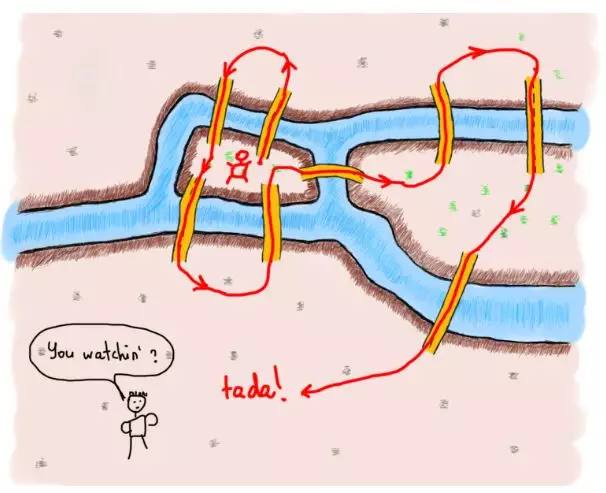 You watchin'?
tada!